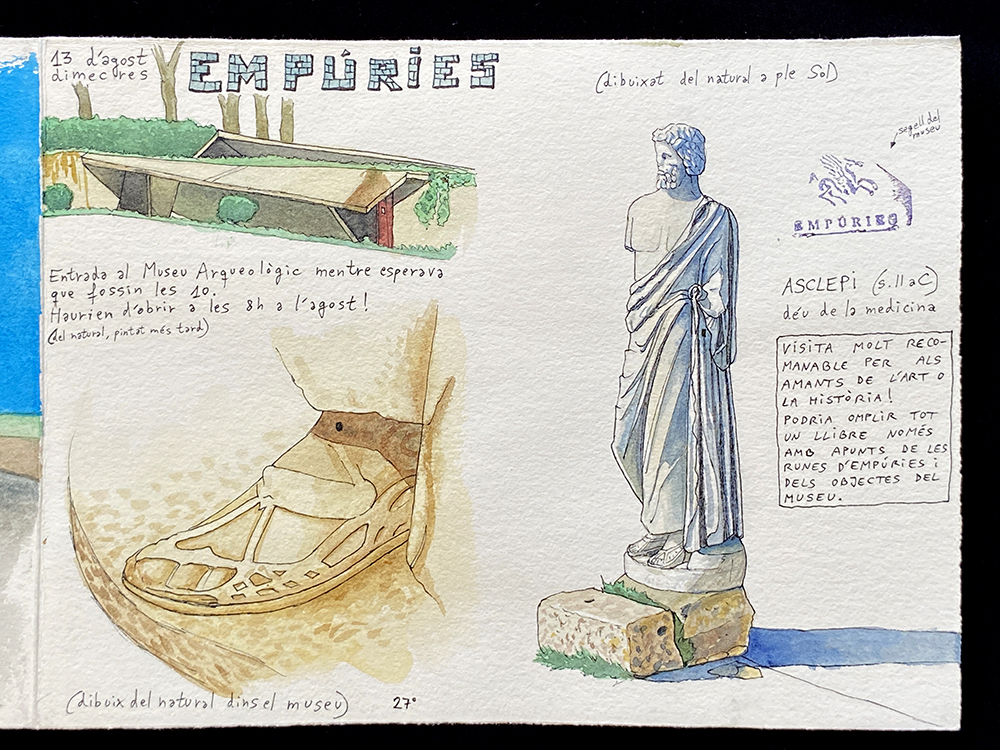 13 d'agost
dimecres
EMPÚRIES
(dibuixat del natural a ple Sol)
segell del
museu
EMPÚRIES
Entrada al Museu Arqueològic mentre esperava
que fossin les 10.
Haurien d'obrir a les 8h a l'agost!
(del natural, pintat més tard)
ASCLEPI (s.II aC)
déu de la medicina
VISITA MOLT RECO-
MANABLE PER ALS
AMANTS DE L'ART O
LA HISTÒRIA!
PODRIA OMPLIR TOT
UN LLIBRE NOMÉS
AMB APUNTS DE LES
RUNES D'EMPÚRIES i
DELS OBJECTES DEL
MUSEU.
(dibuix del natural dins el museu)
27°